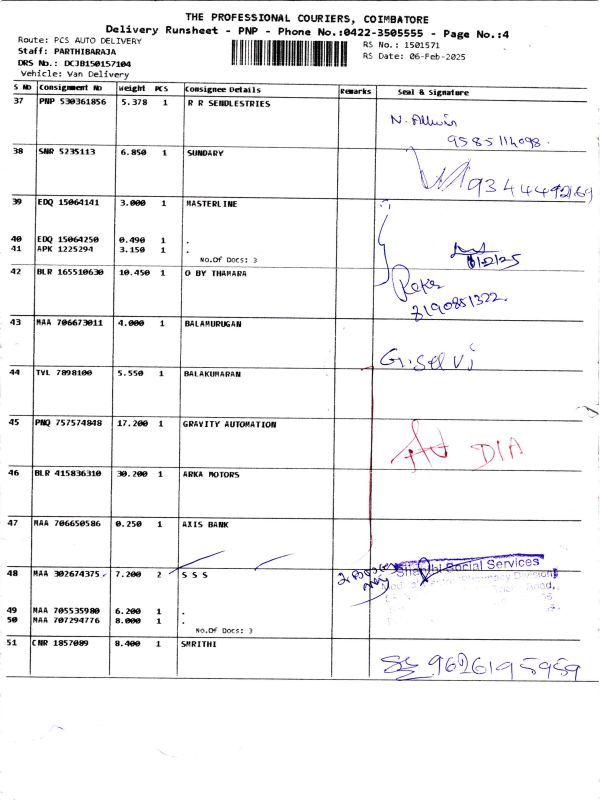 THE PROFESSIONAL COURIERS, COIMBATORE
Delivery Runsheet - PNP - Phone No.:0422-3505555 - Page No.:4
Route: PCS AUTO DELIVERY
RS No.: 1501571
Staff: PARTHIBARAJA
RS Date: 06-Feb-2025
DRS No.: DCJB150157104
Vehicle: Van Delivery
S No Consignment No Weight PCS Consignee Details Remarks Seal & Signature
37 PNP 530361856 5.378 1 R R SENDLESTRIES
N. Allwin
9585114098.
38 SNR 5235113 6.850 1 SUNDARY
9344492169
39 EDQ 15064141 3.000 1 MASTERLINE
40 EDQ 15064250 0.490 1 .
41 APK 1225294 3.150 1 .
No.Of Docs: 3
42 BLR 165510630 10.450 1 O BY THAMARA
8190851322.
43 MAA 706673011 4.000 1 BALAMURUGAN
G. Selvi
44 TVL 7898100 5.550 1 BALAKUMARAN
45 PNQ 757574848 17.200 1 GRAVITY AUTOMATION
DIA
46 BLR 415836310 30.200 1 ARKA MOTORS
47 MAA 706650586 0.250 1 AXIS BANK
48 MAA 302674375 7.200 2 S S S
Social Services
49 MAA 705535980 6.200 1 .
50 MAA 707294776 8.000 1 .
No.Of Docs: 3
51 CNR 1857089 8.400 1 SMRITHI
9626195959